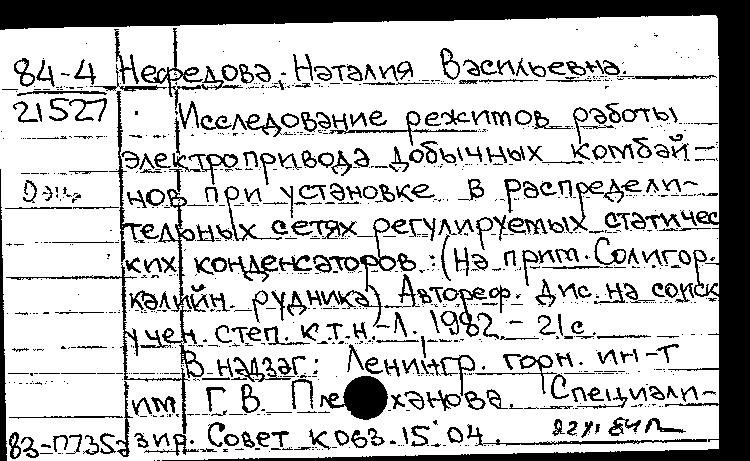 84-4 Нефедова, Наталия Васильевна.
21527 Исследование режимов работы
электропривода добычных комбай-
нов при установке в распредели-
тельных сетях регулируемых статичес
ких конденсаторов: (На прим. Солигор.
калийн. рудника) Автореф. дис. на соиск
учен. степ. к.т.н.-Л. 1982 - 21 с.
В надзаг: Ленингр. горн. ин-т
им Г. В. Плеханова. Специали-
зир. Совет К 063.15.04.